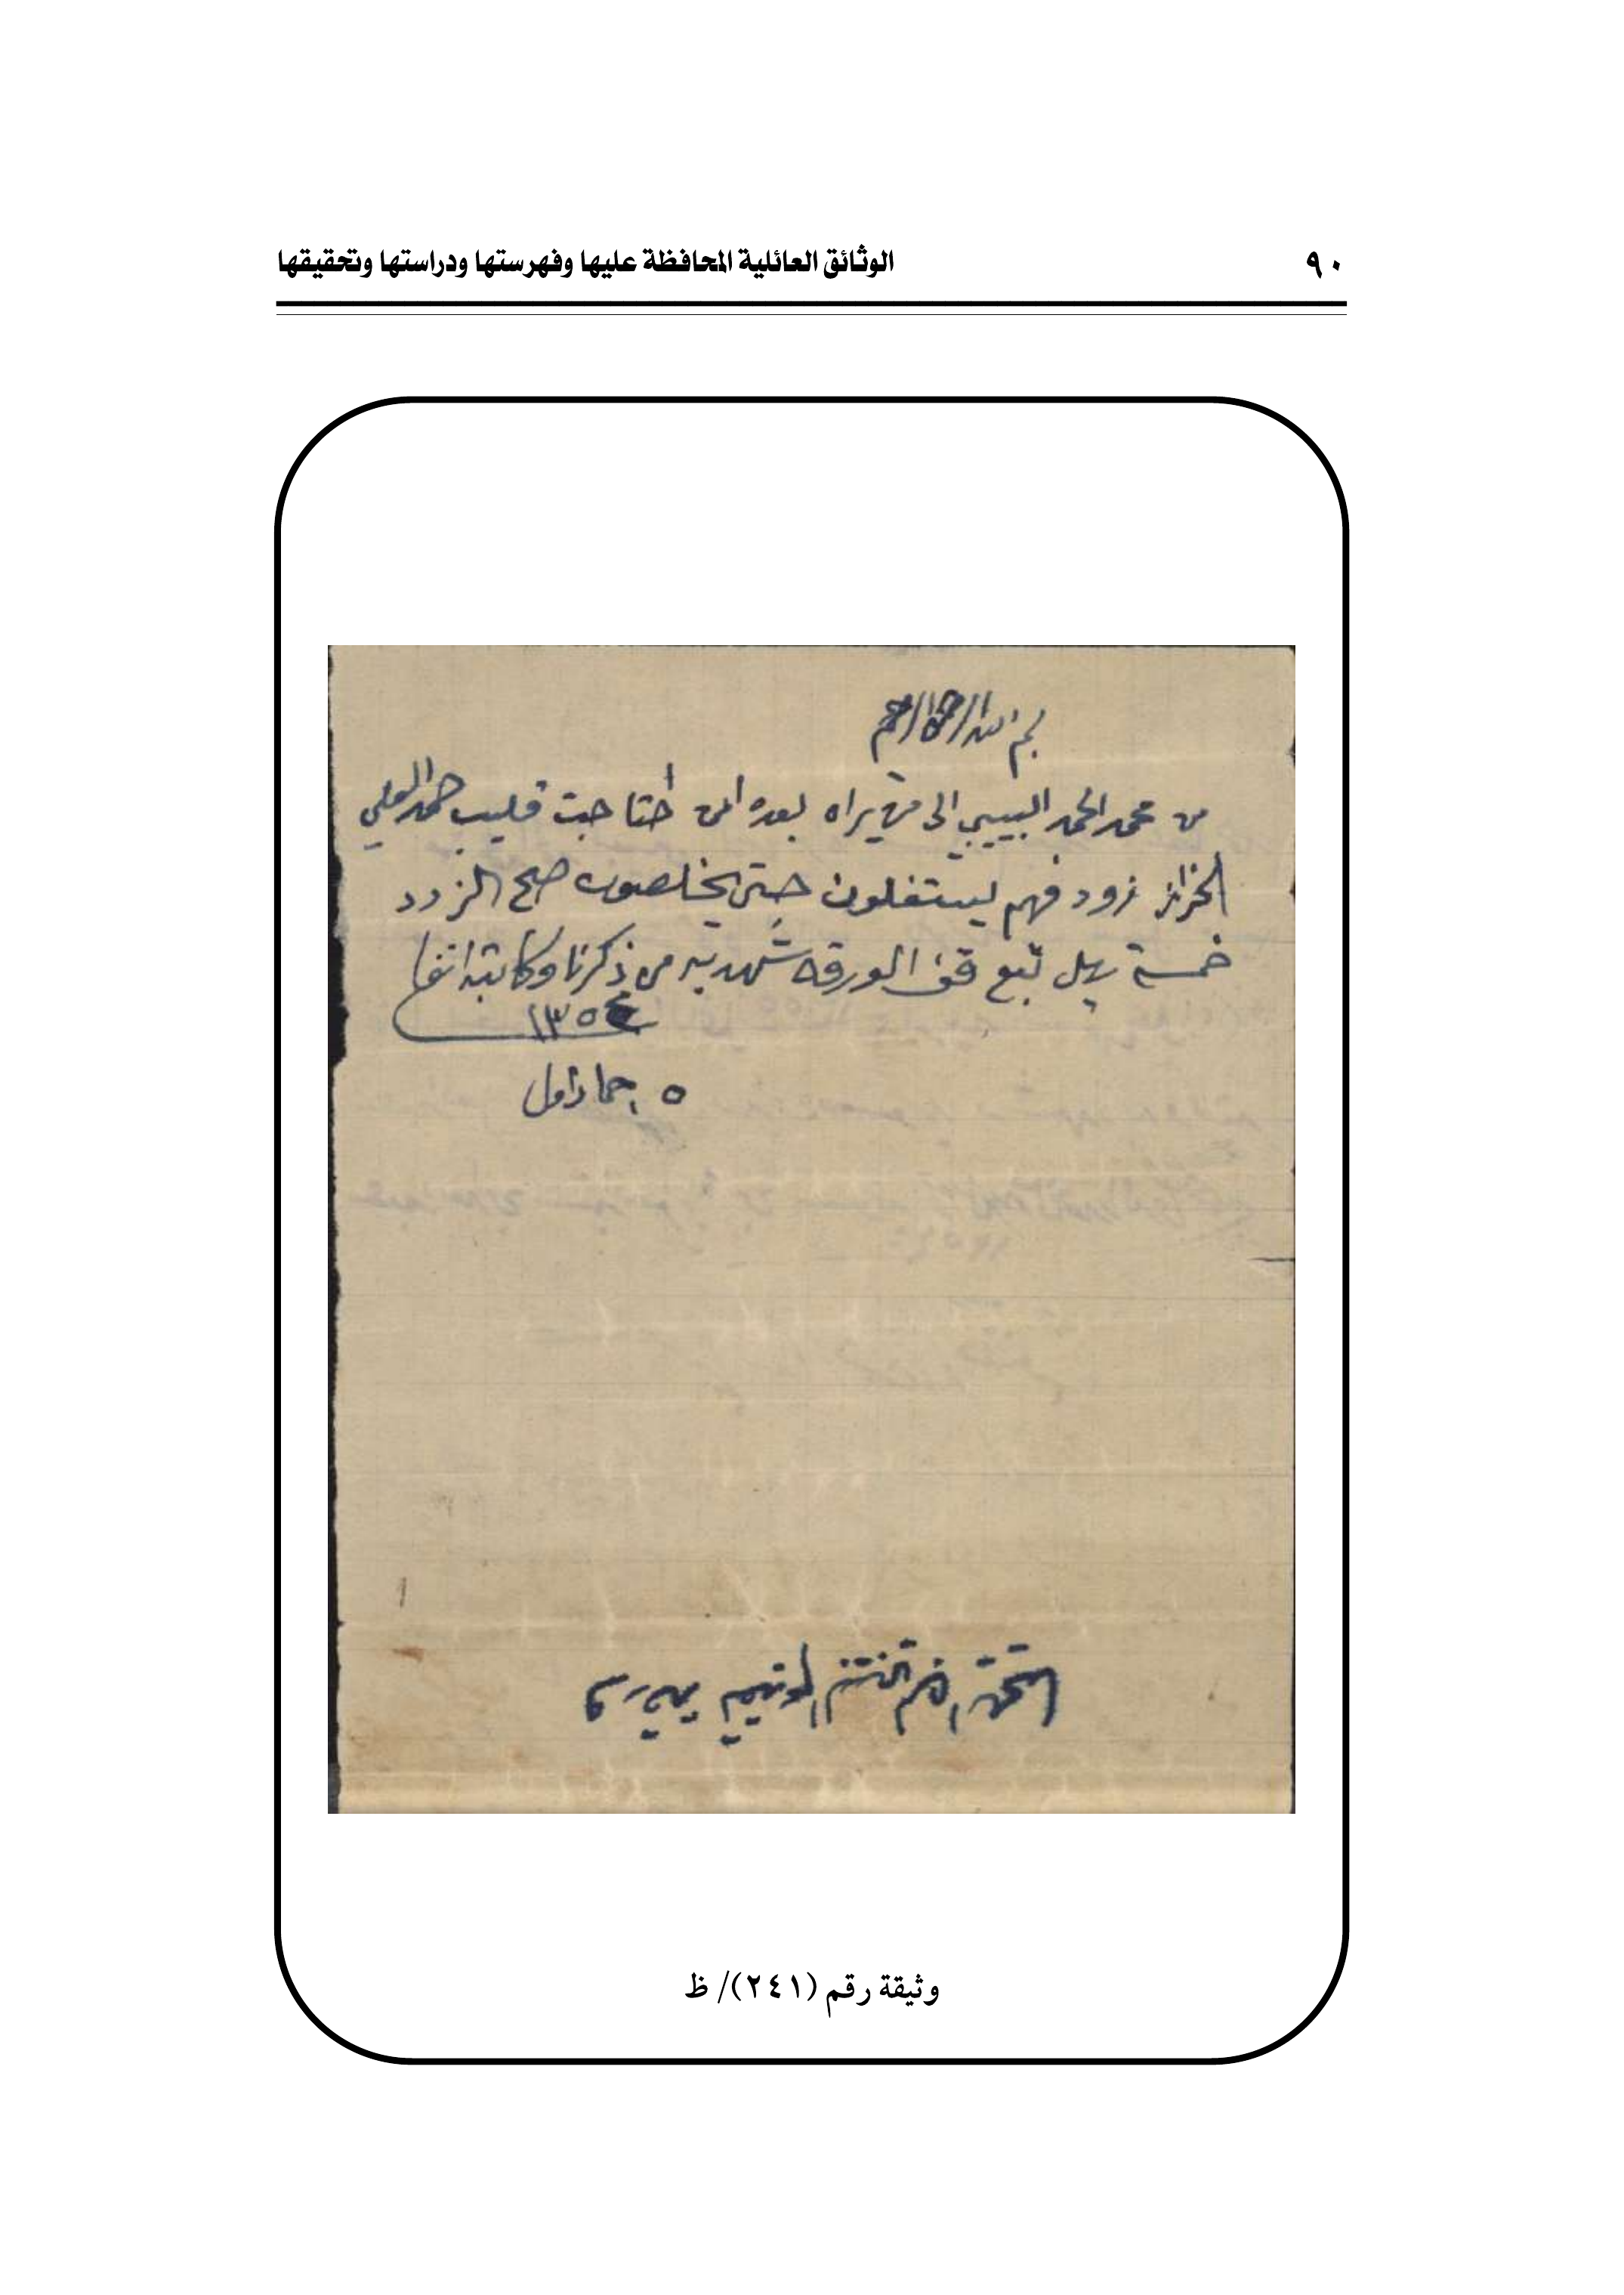 ٩٠
الوثائق العائلية المحافظة عليها وفهرستها ودراستها وتحقيقها
بسم الله الرحمن الرحيم
من محمد الحمد البييبي الى من يراه بعده امن احتاجت قليب حمد العلي
الخزاز زود فهم يستغلون حتى يخلصون صح الزود
خمسة يهل تبع قفى الورقه شهد به من ذكرنا وكاتبه انفا
١٣٥٤
٥ جماد اول
وثيقة رقم (٢٤١)/ ظ